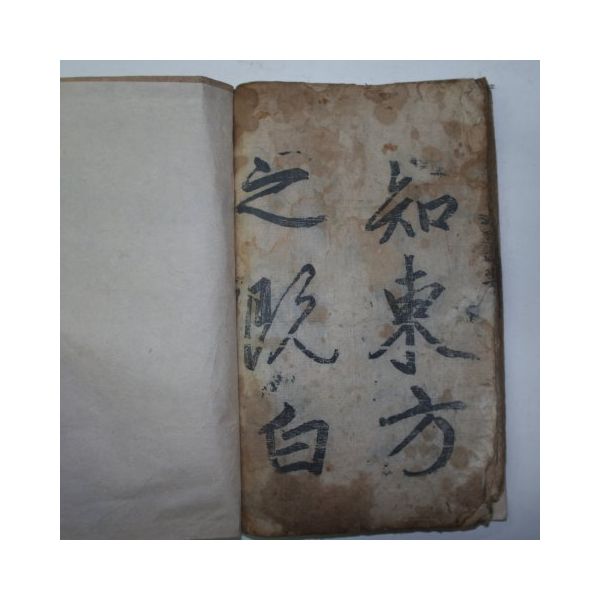 知東方
之既白